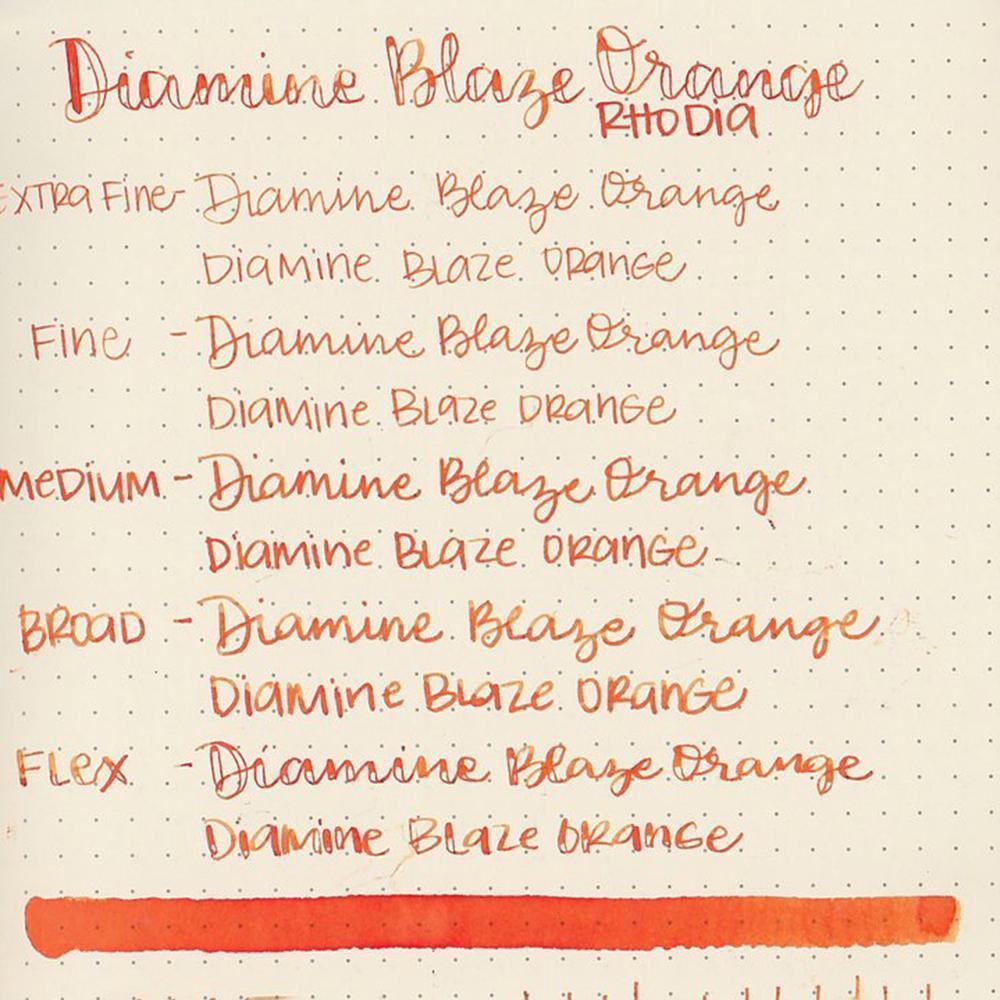 Diamine Blaze Orange
RHODIA
EXTRA Fine - Diamine Blaze Orange
DiaMine Blaze ORange
Fine - Diamine Blaze Orange
DiaMine Blaze ORanGe
MeDiuM - Diamine Blaze Orange
DiaMine Blaze ORanGe
BROaD - Diamine Blaze Orange
DiaMine Blaze ORanGe
FLex - Diamine Blaze Orange
DiaMine Blaze ORanGe